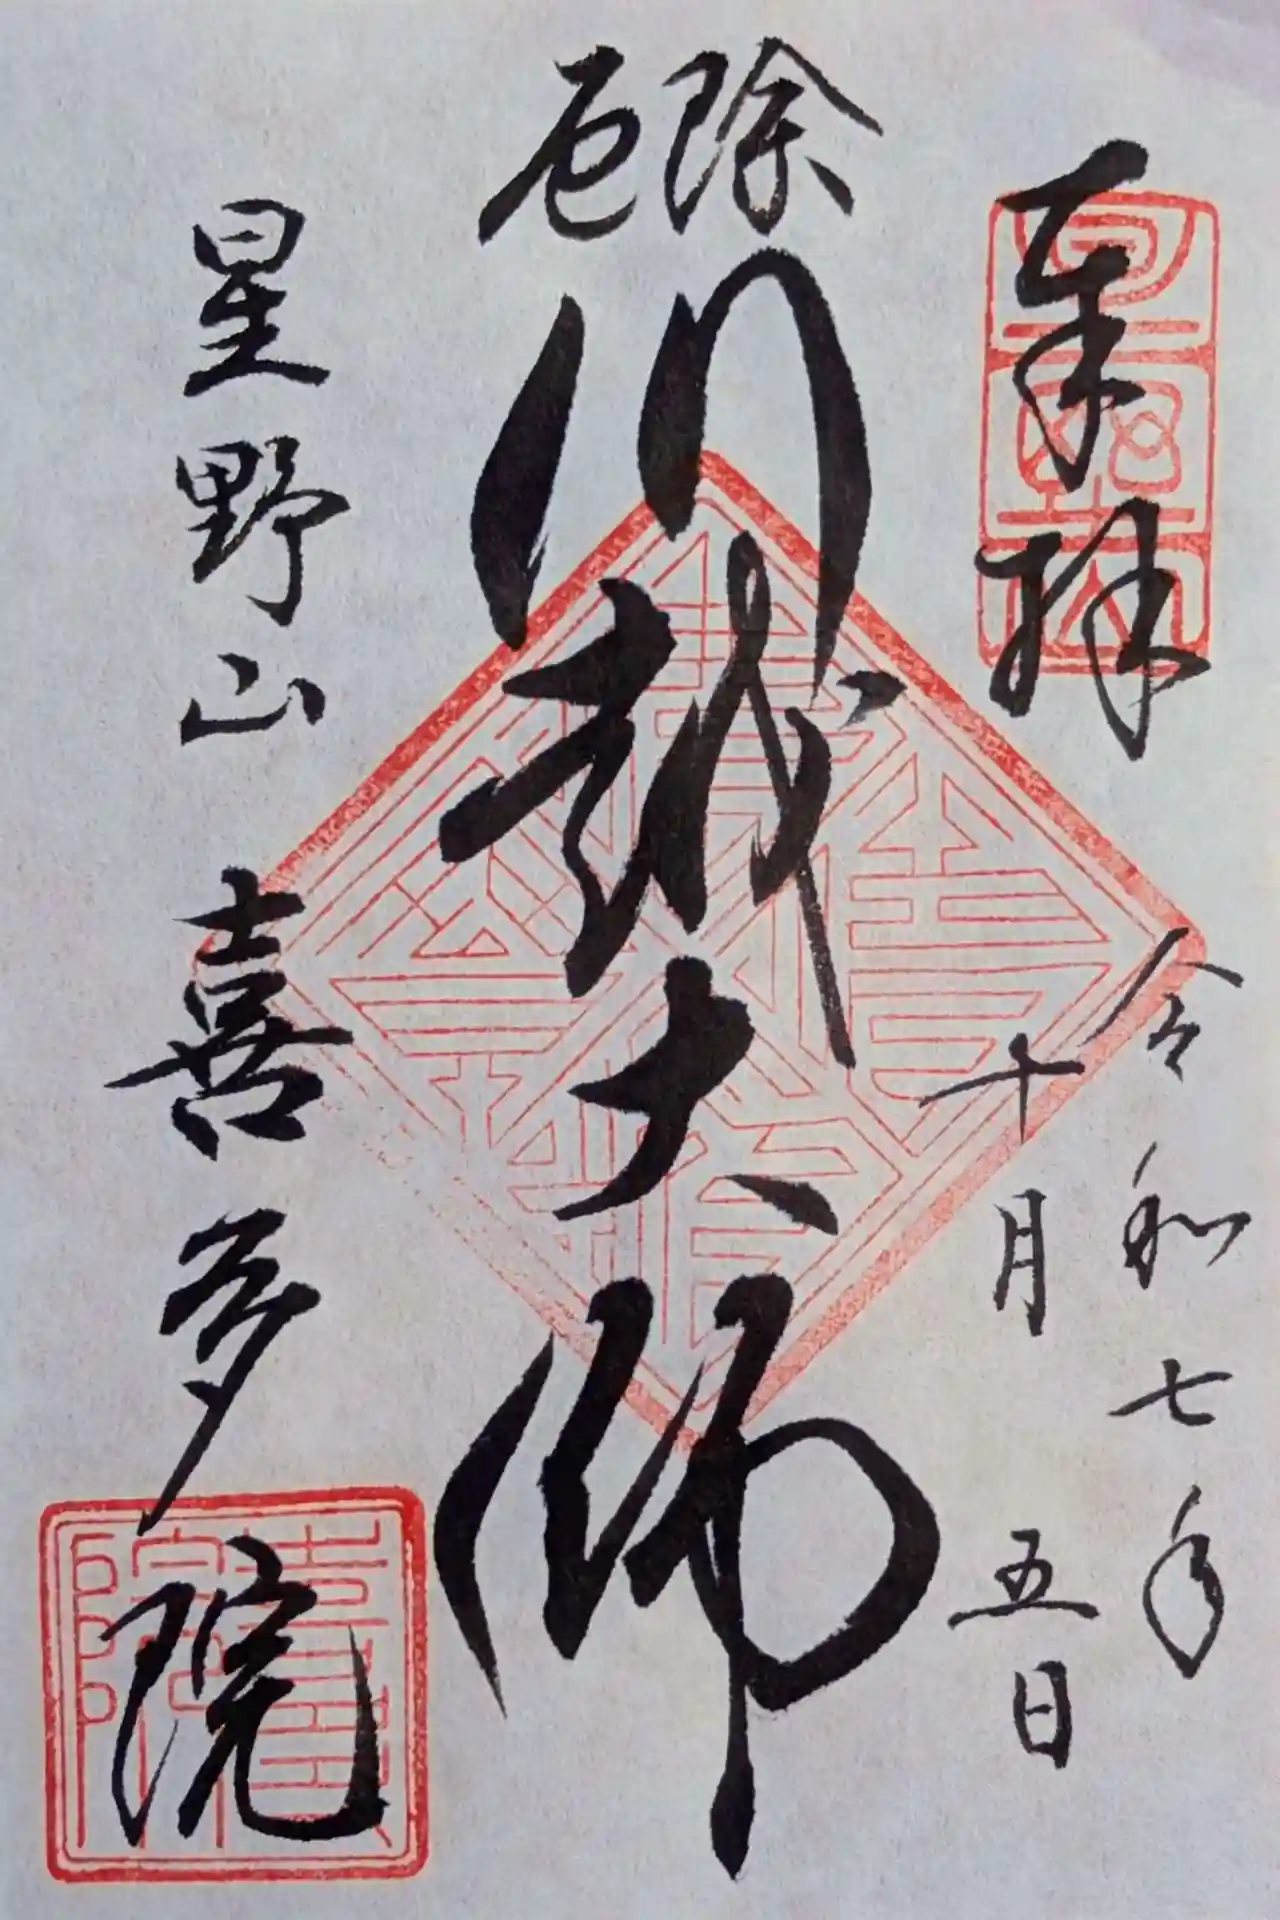 奉拝
令和七年
十月五日
厄除
川越大師
星野山 喜多院
喜多院